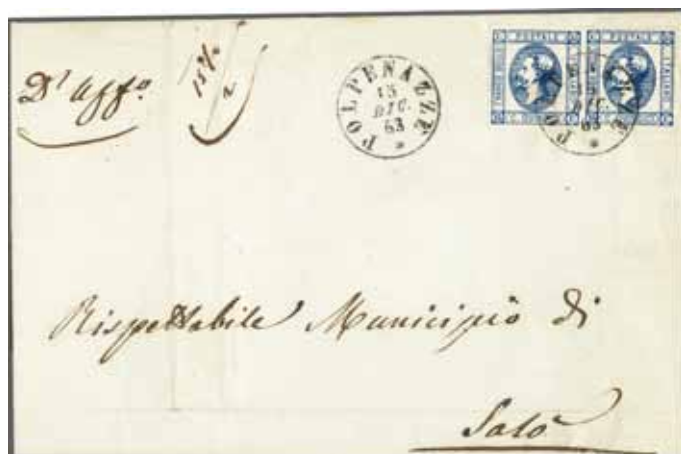 D'Aff.º
POLPENAZZE
13
DIC.
63
POSTALE
POSTALE
Rispettabile Municipio di
Salò